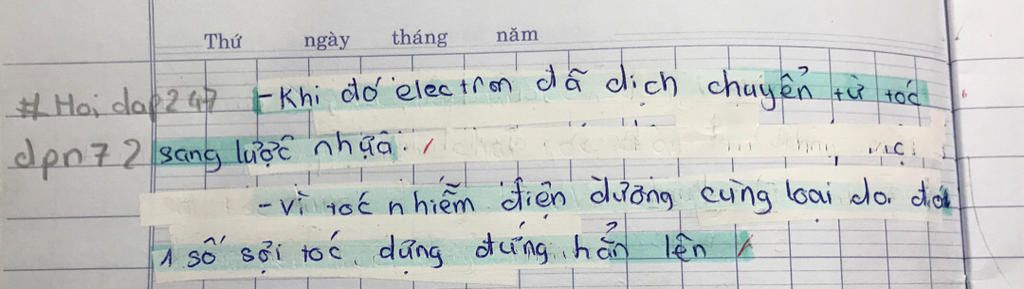 Thứ ngày tháng năm
#Hoidap247 - Khi đó electron đã dịch chuyển từ tóc
dpn72 sang lược nhựa.
- vì tóc nhiễm điện dương cùng loại do. đó
1 số sợi tóc dựng đứng hẳn lên